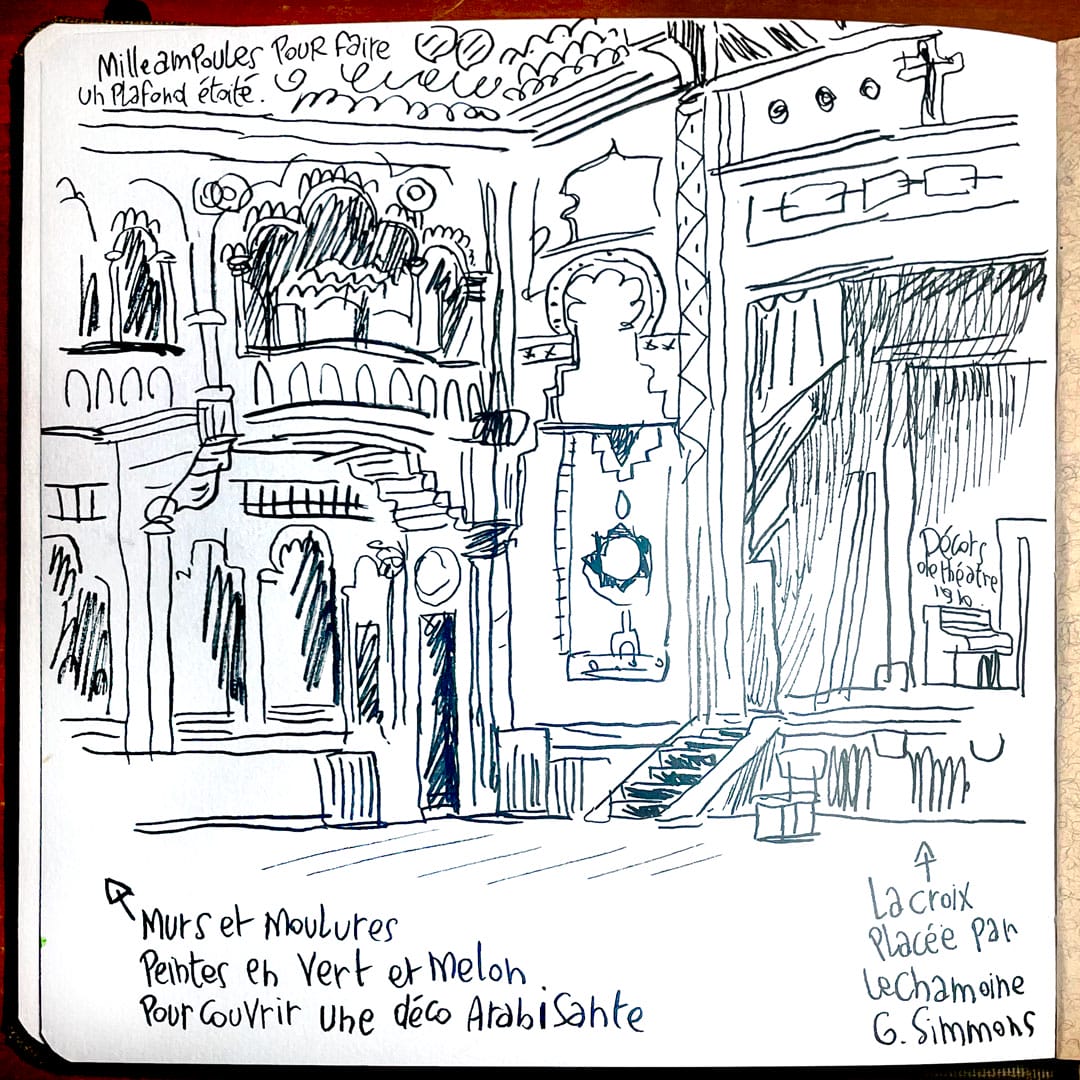 Mille ampoules pour faire
un plafond étoilé.
Décors
de théâtre
1910.
Murs et Moulures
Peintes en Vert et Melon
Pour couvrir une déco Arabisante
La croix
Placée par
Le Chamoine
G. Simmons